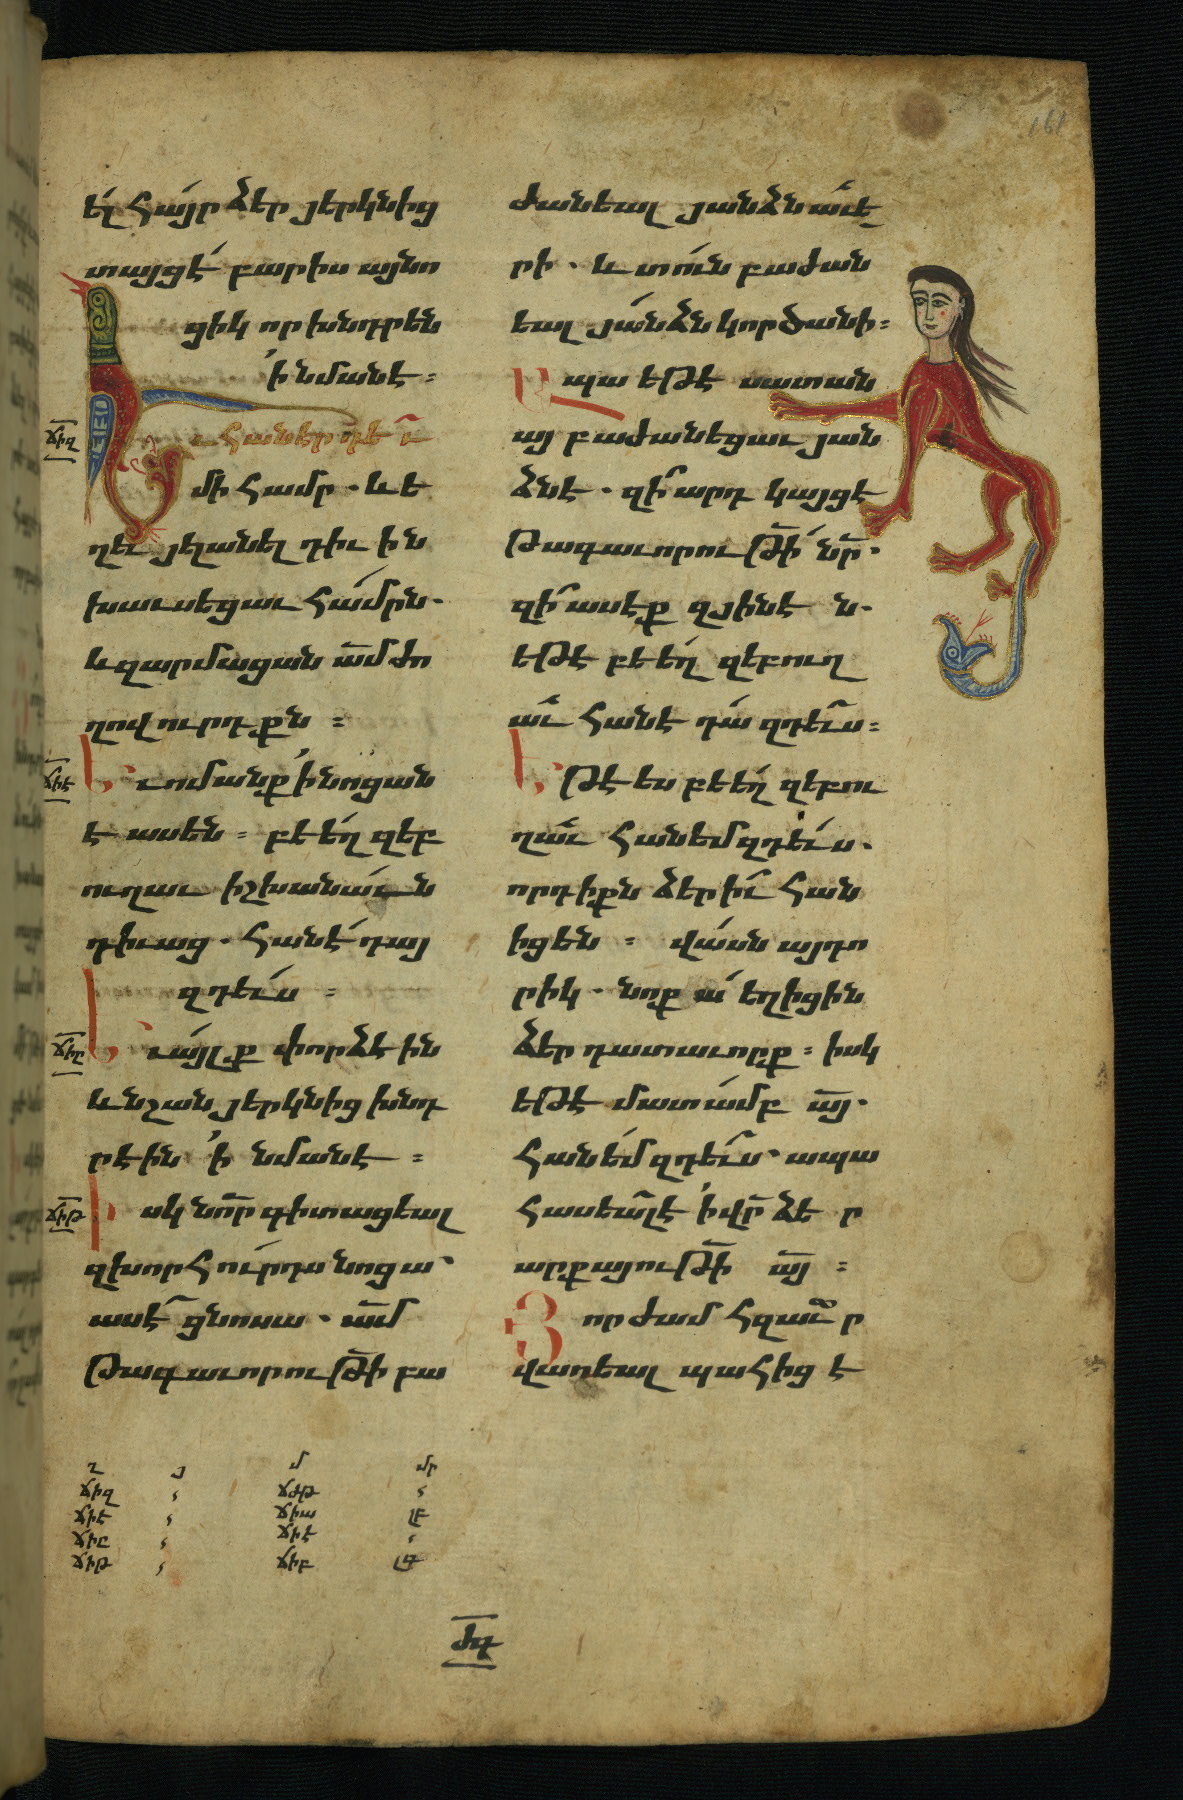 161
ել հայր ձեր յերկնից
տայցէ բարիս այնո
ցիկ որ խնդրեն
ի նմանէ ։
ւ հանէր դե ւ
ճիզ
մի համր . և ե
ղեւ յելանել դիւ ին
խաւսեցաւ համրն .
և զարմացան ամ ժո
ղովուրդքն ։
Եւ ոմանք ի նոցան
ճիէ
է ասեն ։ բէեղզեբ
ուղաւ իշխանաւն
դիւաց . հանէ դայ
զդեւս ։
Եւ այլք փորձէին
ճիը
և նշան յերկնից խնդ
րէին ի նմանէ ։
Իսկ նոր գիտացեալ
ճիթ
զխորհուրդս նոցա
ասէ ցնոսա . ամ
թագաւորուԹի բա
ժանեալ յանձն աւե
րի . և տուն բաժան
եալ յանձն կործանի ։
Ապա եթէ սատան
այ բաժանեցաւ յան
ձնէ . զի արդ կայցէ
թագաւորուԹի նր .
զի ասէք զջինէ ն .
եթէ բէեղզեբուղ
աւ հանէ դա զդեւս ։
Եթէ ես բէեղզեբու
ղաւ հանեմ զդեւս .
որդիքն ձեր իւ հան
իցեն ։ վասն այդո
րիկ . նոքա եղիցին
ձեր դատաւորք ։ իսկ
եթէ մատամբ այ .
հանեմ զդեւս . ապա
հասեալ է ի վր ձե ր
արքայուԹի այ ։
Յորժամ հզաւր
վառեալ պահիցէ
Ղ Յ Մ Մր
ճիզ ճժթ
ճիէ ճիա ԼԲ
ճիը ճիէ
ճիթ ճիբ ԼԳ
ԺԳ